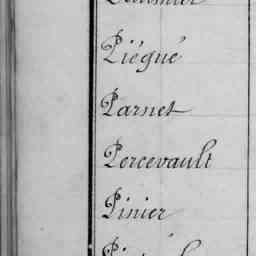 Piégué
Parnet
Percevault
Pinier